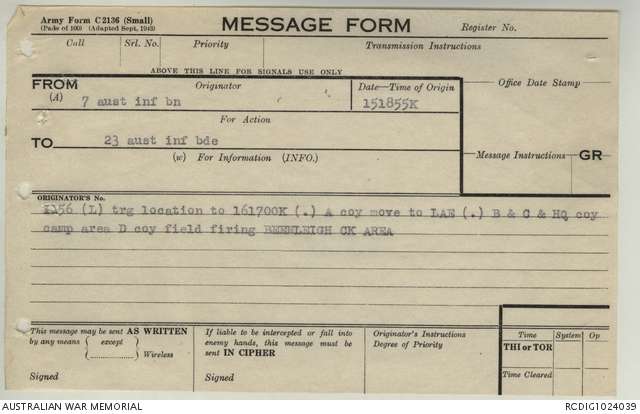 Army Form C2136 (Small)
(Pads of 100) (Adapted Sept. 1943)
MESSAGE FORM
Register No.
Call Srl. No. Priority Transmission Instructions
ABOVE THIS LINE FOR SIGNALS USE ONLY
FROM Originator Date—Time of Origin Office Date Stamp
(A) 7 aust inf bn 151855K
For Action
TO 23 aust inf bde
(w) For Information (INFO.) Message Instructions GR
ORIGINATOR'S No.
(L) trg location to 161700K (.) A coy move to LAE (.) B & C & HQ coy
camp area D coy field firing AREA
This message may be sent AS WRITTEN
by any means { except } Wireless
Signed
If liable to be intercepted or fall into
enemy hands, this message must be
sent IN CIPHER
Signed
Originator's Instructions
Degree of Priority
Time System Op
THI or TOR
Time Cleared
AUSTRALIAN WAR MEMORIAL RCDIG1024039